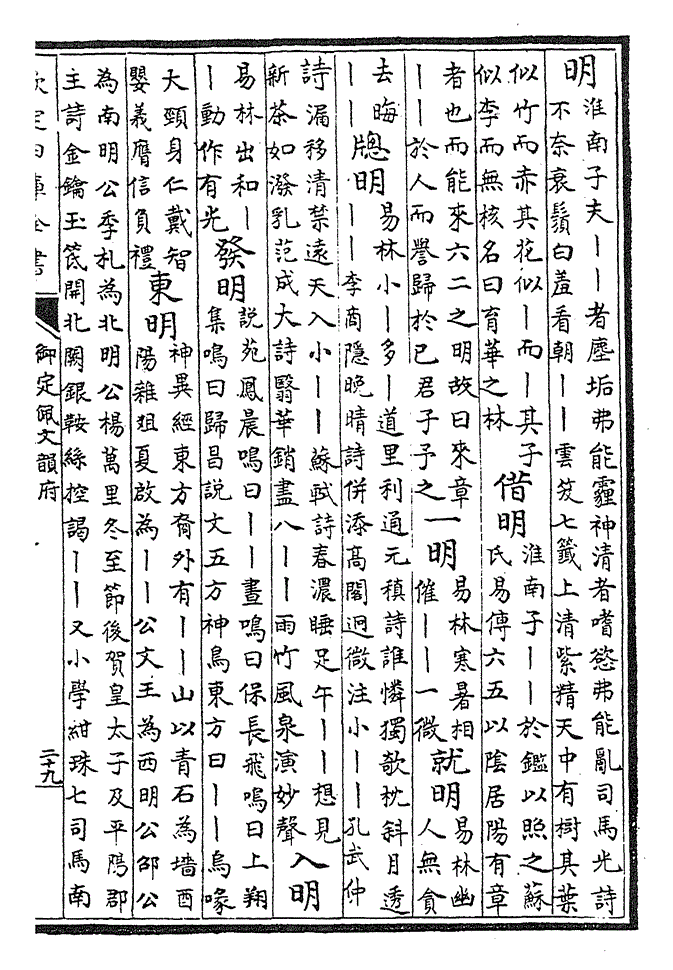 明
淮南子夫丨丨者塵垢弗能霾神清者嗜慾弗能亂司馬光詩
不奈衰鬚白羞看朝丨丨雲笈七籤上清紫精天中有樹其葉
似竹而赤其花似丨而丨其子
似李而無核名曰育華之林
借明
淮南子丨丨於鑑以照之蘇
氏易傳六五以陰居陽有章
者也而能來六二之明故曰來章
丨丨於人而譽歸於已君子予之
一明
易林寒暑相
催丨丨一微
就明
易林幽
人無貪
去晦
丨丨
牕明
易林小丨多丨道里利通元稹詩誰憐獨欹枕斜月透
丨丨李商隱晚晴詩併添高閣迥微注小丨丨孔武仲
詩漏移清禁遠天入小丨丨蘇軾詩春濃睡足午丨丨想見
新茶如潑乳范成大詩翳華銷盡八丨丨雨竹風泉演妙聲
入明
易林出和丨
丨動作有光
發明
說苑鳳晨鳴曰丨丨晝鳴曰保長飛鳴曰上翔
集鳴曰歸昌說文五方神鳥東方曰丨丨鳥喙
大頸身仁戴智
嬰義膺信負禮
東明
神異經東方裔外有丨丨山以青石為墻酉
陽雜俎夏啟為丨丨公文王為西明公邵公
為南明公季札為北明公楊萬里冬至節後賀皇太子及平陽郡
主詩金鑰玉筦開北闕銀鞍絲控謁丨丨又小學紺珠七司馬南
欽定四庫全書
御定佩文韻府
二十九